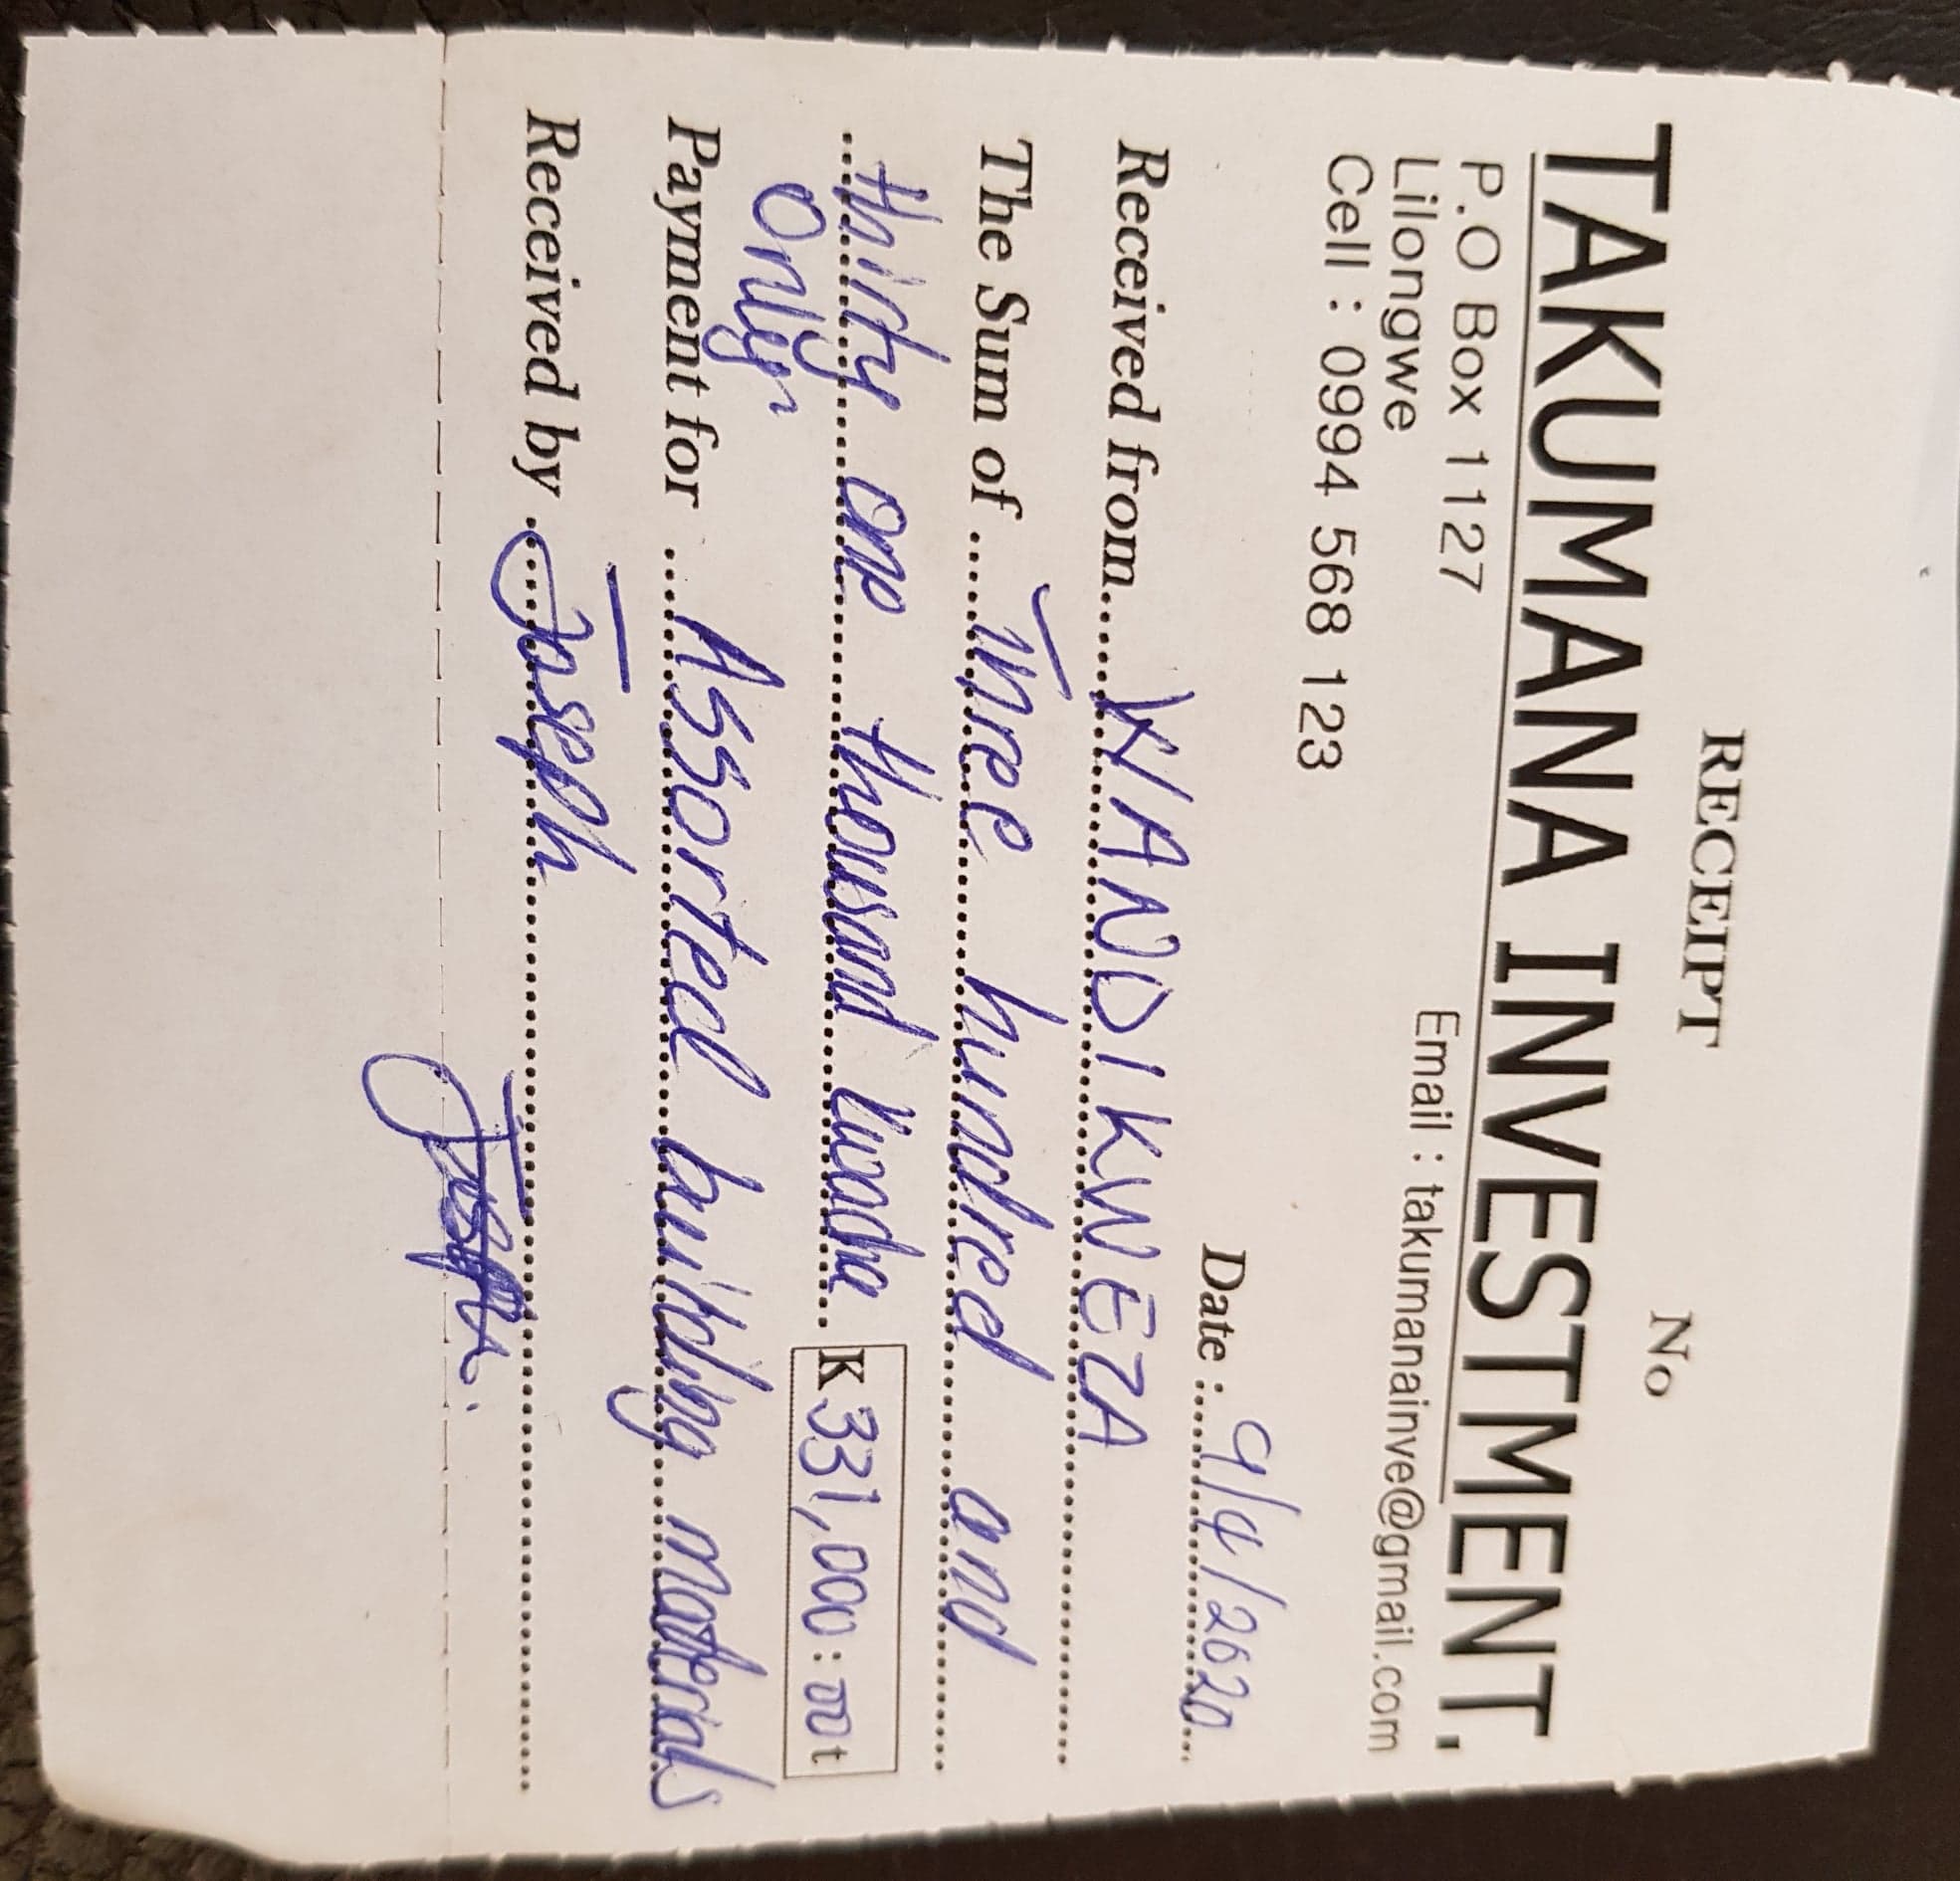 RECEIPT
No
TAKUMANA INVESTMENT.
P.O Box 1127
Lilongwe
Cell : 0994 568 123
Email : takumanainve@gmail.com
Date : 9/4/2020
Received from WANDIKWEZA
The Sum of Three hundred and
thirty one thousand kwacha K 331,000:00 t
Only
Payment for Assorted building materials
Received by Joseph